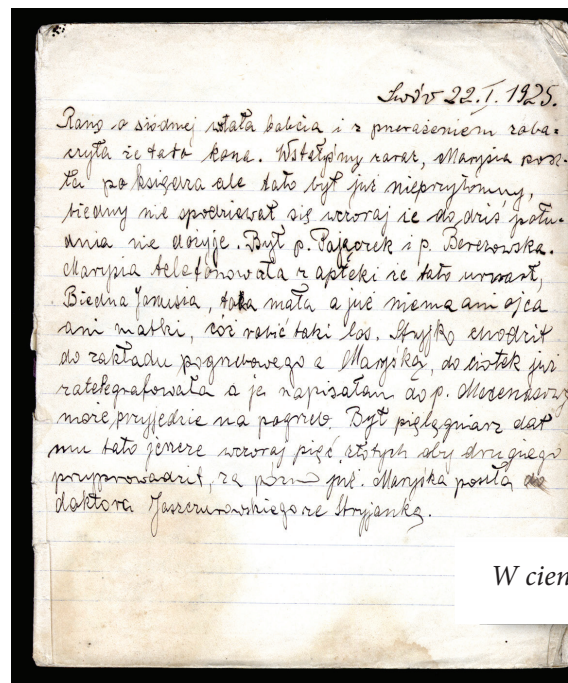 Lwów 22.I.1925.
Rano o siódmej wstała babcia i z przerażeniem zoba=
czyła że tato kona. Wstałyśmy zaraz, Marysia posz-
ła po księdza ale tato był już nieprzytomny,
biedny nie spodziewał się wczoraj że do dziś połu-
dnia nie dożyje. Był p. Pajączek i p. Berezowska.
Marysia telefonowała z apteki że tato umarł,
Biedna Janusia, taka mała a już niema ani ojca
ani matki, cóż robić taki los. Stryjko chodził
do zakładu pogrzebowego z Maryśką, do ciotek już
zatelegrafowała a ja napisałam do p.
może przyjedzie na pogrzeb. Był pielęgniarz dał
mu tato jeszcze wczoraj pięć złotych aby drugiego
przyprowadził, za już. Maryśka poszła do
doktora Jaszczurowskiego ze Stryjanką.
W cien